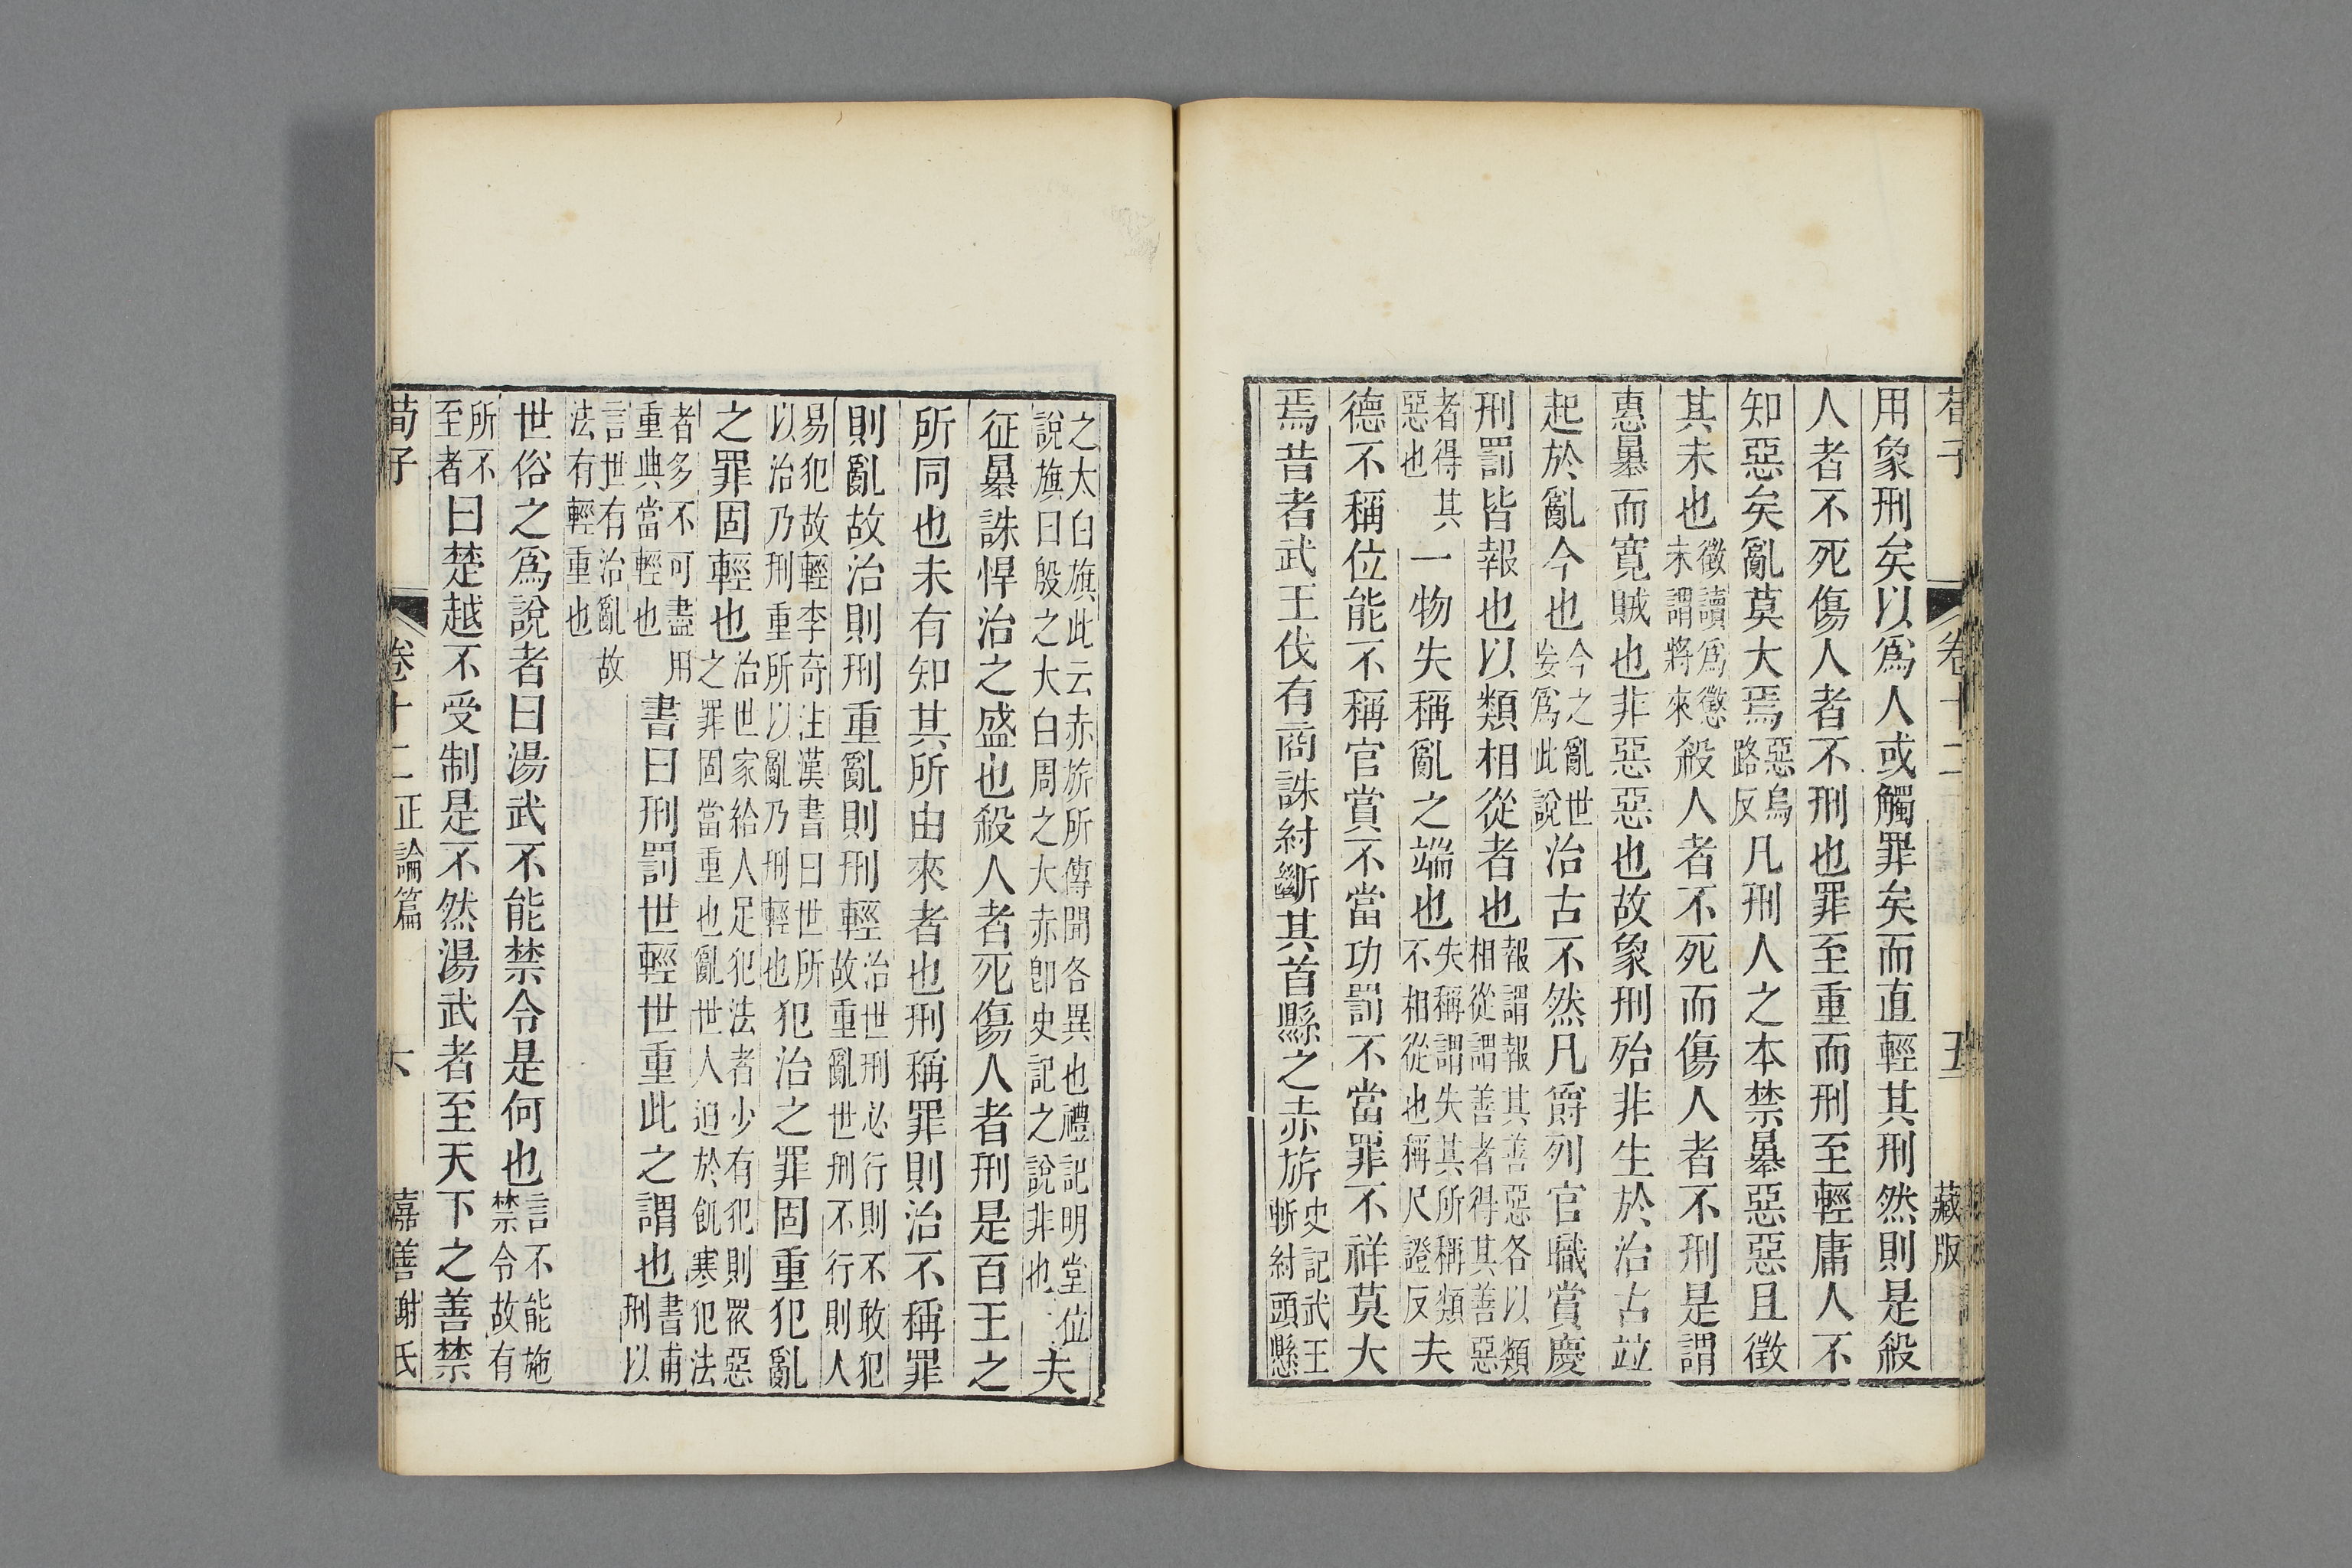 荀子 卷十二 五 藏版
用象刑矣以爲人或觸罪矣而直輕其刑然則是殺
人者不死傷人者不刑也罪至重而刑至輕庸人不
知惡矣亂莫大焉惡烏路反凡刑人之本禁暴惡惡且徵
其未也徵讀爲懲未謂將來殺人者不死而傷人者不刑是謂
惠暴而寬賊也非惡惡也故象刑殆非生於治古竝
起於亂今也今之亂世妄爲此說治古不然凡爵列官職賞慶
刑罰皆報也以類相從者也報謂報其善惡各以類相從謂善者得其善惡
者得其惡也一物失稱亂之端也失稱謂失其所稱類不相從也稱尺證反夫
德不稱位能不稱官賞不當功罰不當罪不祥莫大
焉昔者武王伐有商誅紂斷其首縣之赤旂史記武王斬紂頭懸
之太白旗此云赤旂所傳聞各異也禮記明堂位說旗曰殷之大白周之大赤卽史記之說非也夫
征暴誅悍治之盛也殺人者死傷人者刑是百王之
所同也未有知其所由來者也刑稱罪則治不稱罪
則亂故治則刑重亂則刑輕治世刑必行則不敢犯故重亂世刑不行則人
易犯故輕李奇注漢書曰世所以治乃刑重所以亂乃刑輕也犯治之罪固重犯亂
之罪固輕也治世家給人足犯法者少有犯則眾惡之罪固當重也亂世人迫於飢寒犯法
者多不可盡用重典當輕也書曰刑罰世輕世重此之謂也書甫刑以
言世有治亂故法有輕重也
世俗之爲說者曰湯武不能禁令是何也言不能施禁令故有
所不至者曰楚越不受制是不然湯武者至天下之善禁
荀子 卷十二 正論篇 六 嘉善謝氏